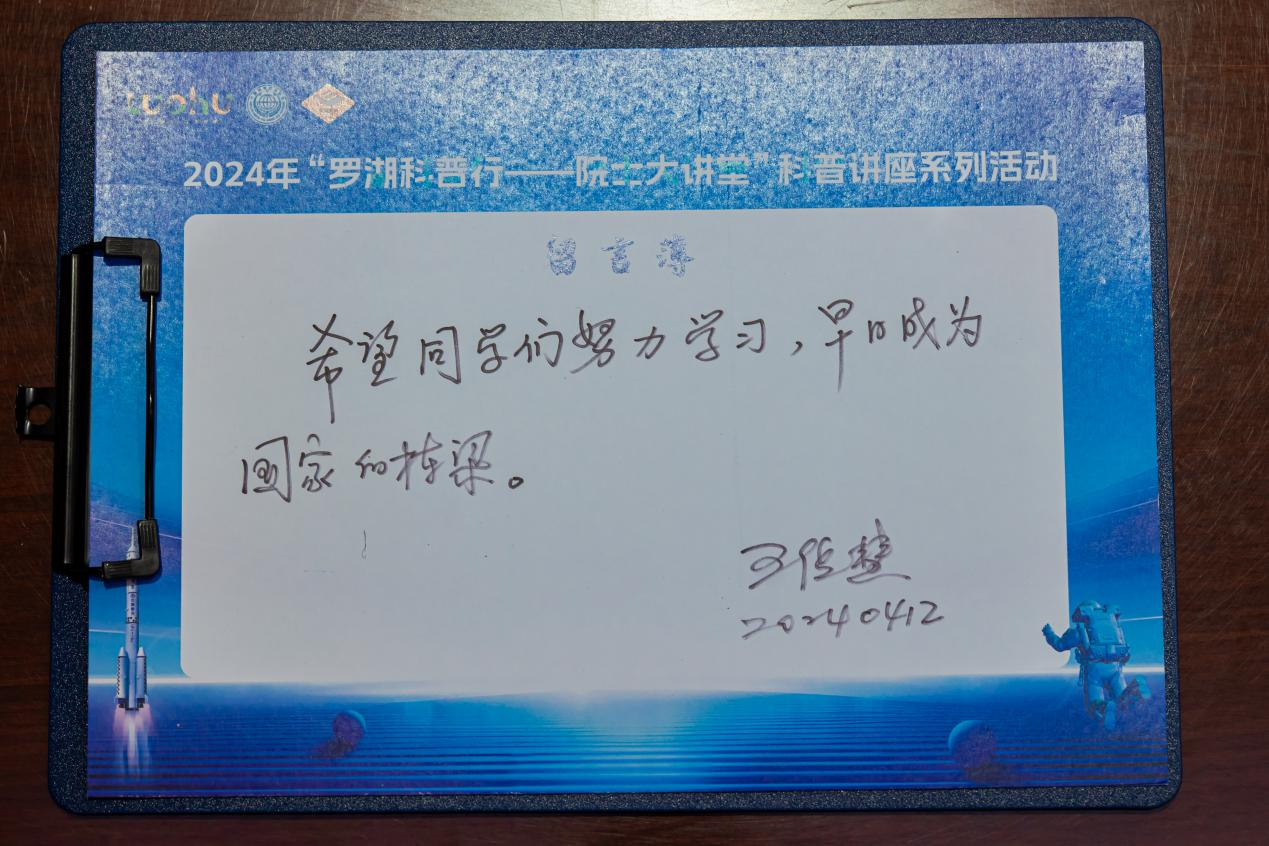 luohu
2024年“罗湖科普行——院士大讲堂”科普讲座系列活动
留言薄
希望同学们努力学习，早日成为
国家的栋梁。
20240412